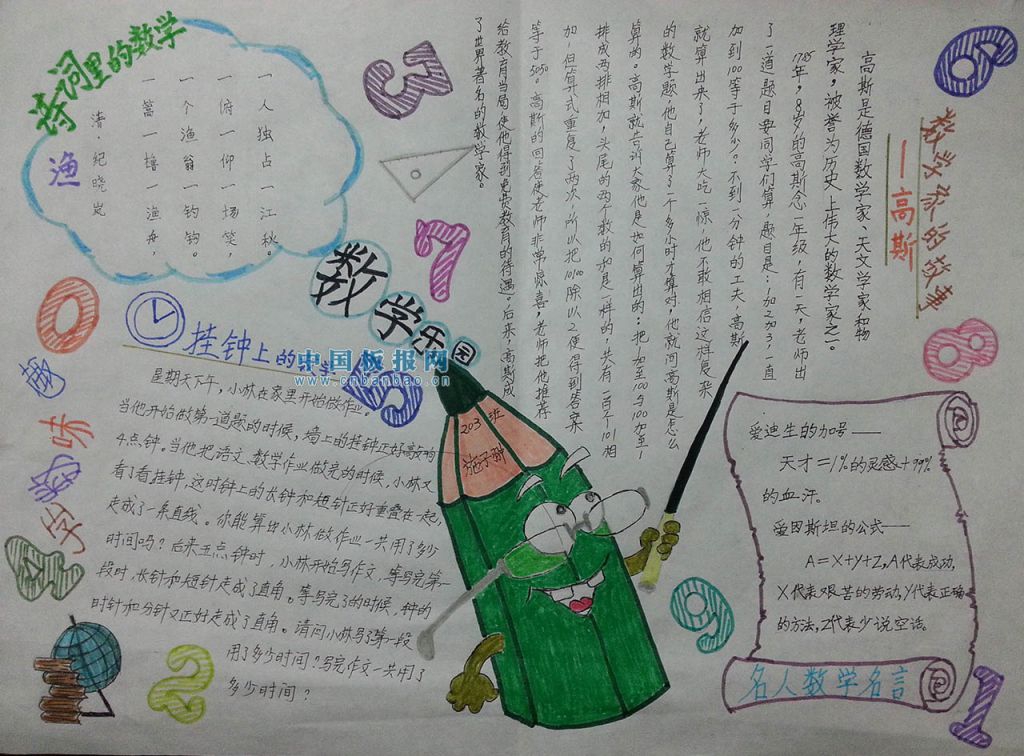 诗词里的数学
渔
清·纪晓岚
一篙一橹一渔舟，
一个渔翁一钓钩。
一俯一仰一场笑，
一人独占一江秋。
3
7
6
数学家的故事
——高斯
高斯是德国数学家、天文学家和物
理学家，被誉为历史上伟大的数学家之一。
1785年，8岁的高斯念一年级，有一天，老师出
了一道题目要同学们算，题目是：1加2加3，一直
加到100等于多少？不到一分钟的工夫，高斯
就算出来了，老师大吃一惊，他不敢相信这样复杂
的数学题，他自己算了一个多小时才算对，他就问高斯是怎么
算的。高斯就告诉大家他是如何算出的：把1加至100与100加至1
排成两排相加，头尾的两个数的和是一样的，共有一百个101相
加，但算式重复了两次，所以把10100除以2便得到答案
等于5050。高斯的回答使老师非常惊喜，老师把他推荐
给教育当局，使他得到免费教育的待遇。后来，高斯成
了世界著名的数学家。
数学乐园
0
8
5
趣味数学
挂钟上的
中国板报网
www.cnbanbao.cn
星期天下午，小林在家里开始做作业。
当他开始做第一道题的时候，墙上的挂钟正好敲响
4点钟。当他把语文、数学作业做完的时候，小林又
看了看挂钟，这时钟上的长钟和短针正好重叠在一起，
走成了一条直线。你能算出小林做作业一共用了多少
时间吗？后来五点钟时，小林开始写作文，等写完第一
段时，长针和短针走成了直角。等写完了的时候，钟的
时针和分针又正好走成了直角。请问小林写了第一段
用了多少时间？写完作文一共用了
多少时间？
203班
施子
爱迪生的加号——
天才=1%的灵感+99%
的血汗。
爱因斯坦的公式——
A=X+Y+Z，A代表成功，
X代表艰苦的劳动，Y代表正确
的方法，Z代表少说空话。
名人数学名言
4
2
9
1